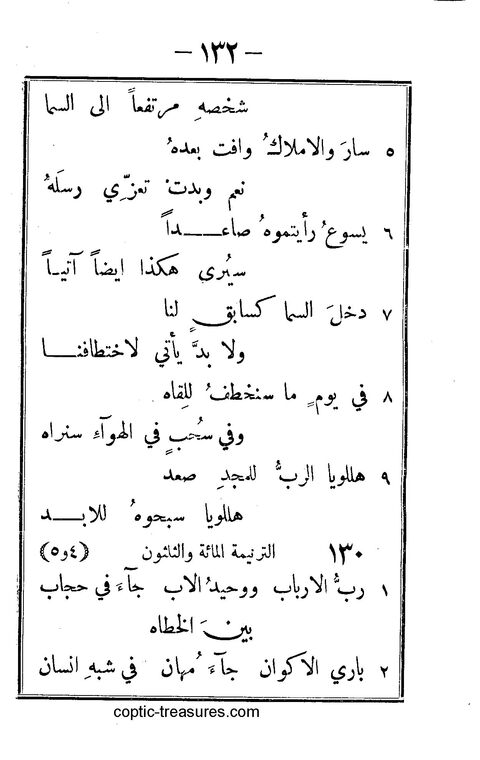 – ١٣٢ –
شخصهِ مرتفعاً الى السما
٥ سارَ والاملاكُ وافت بعدهُ
نعم وبدت تعزّي رسلَهُ
٦ يسوعُ رأيتموهُ صاعـــداً
سيُرى هكذا ايضاً آتيـاً
٧ دخلَ السما كسابقٍ لنا
ولا بدَّ يأتي لاختطافنـــا
٨ في يومٍ ما سنخطفُ للِقاه
وفي سُحبٍ في الهوآءِ سنراه
٩ هللويا الربُّ للمجدِ صعد
هللويا سبحوهُ للابـــد
١٣٠ الترنيمة المائة والثلثون (٤و٥)
١ ربُّ الارباب ووحيدُ الاب جآءَ في حجاب
بينَ الخطاه
٢ باري الاكوان جآءَ مُهان في شبهِ انسان
coptic-treasures.com